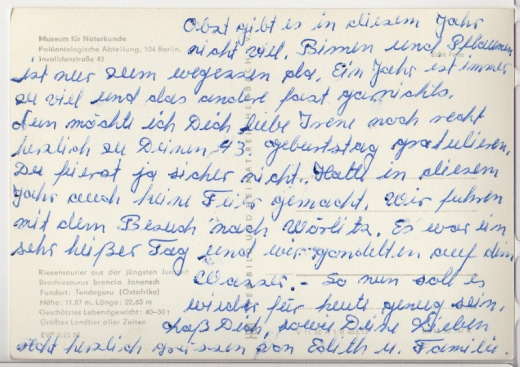 Obst gibt es in diesem Jahr
nicht viel. Birnen und Pflaumen
ist nur zum wegessen da. Ein Jahr ist immer
zu viel und das andere fast garnichts.
Nun möchte ich Dich liebe Irene noch recht
herzlich zu Deinen 43. Geburtstag gratulieren.
Du feierst ja sicher nicht. Hatte in diesem
Jahr auch keine Feier gemacht. Wir fuhren
mit dem Besuch nach Wörlitz. Es war ein
sehr heißer Tag und wir gondelten auf dem
Wasser. - So nun soll es
wieder für heute genug sein.
Laß Dich, sowie Deine Lieben
recht herzlich grüssen von Edith u. Familie.
Museum für Naturkunde
Paläontologische Abteilung, 104 Berlin,
Invalidenstraße 43
Riesensaurier aus der jüngsten
Brachiosaurus brancai Janensch
Fundort: Tendaguru (Ostafrika)
Höhe: 11,87 m, Länge: 22,65 m
Geschätztes Lebendgewicht: 40–50 t
Größtes Landtier aller Zeiten